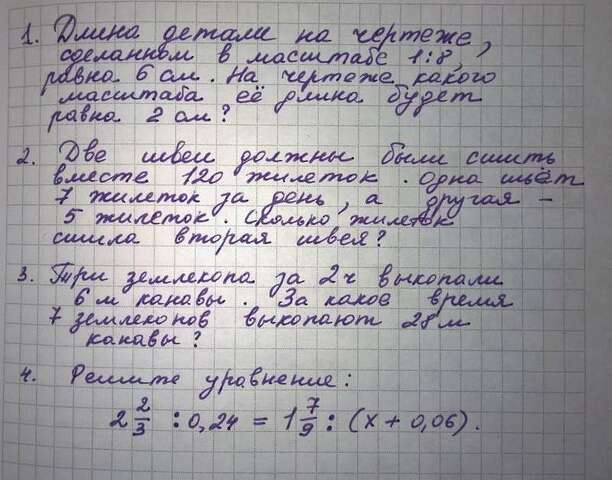 1. Длина детали на чертеже,
сделанном в масштабе 1:8,
равна 6 см. На чертеже какого
масштаба её длина будет
равна 2 см?
2. Две швеи должны были сшить
вместе 120 жилеток. Одна шьёт
7 жилеток за день, а другая –
5 жилеток. Сколько жилеток
сшила вторая швея?
3. Три землекопа за 2ч выкопали
6 м канавы. За какое время
7 землекопов выкопают 28 м
канавы?
4. Решите уравнение:
2 2/3 : 0,24 = 1 7/9 : (х + 0,06).